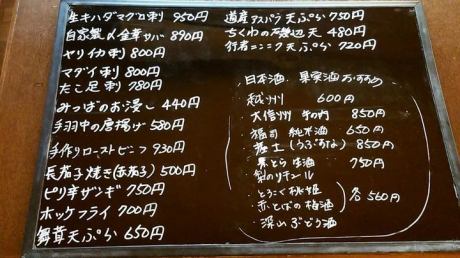 生キハダマグロ刺 950円
自家製〆金華サバ 890円
ヤリイカ刺 800円
マダイ刺 800円
たこ足刺 780円
みつばのお浸し 440円
手羽中の唐揚げ 580円
手作りローストビーフ 930円
長茄子焼き(赤茄子) 500円
ピリ辛ザンギ 750円
ホッケフライ 700円
舞茸天ぷら 650円
道産アスパラ天ぷら 750円
ちくわの磯辺天 480円
行者ニンニク天ぷら 720円
日本酒、果実酒おすすめ
・越州 600円
・大信州 850円
・純米酒 650円
・(うぶすな) 850円
・とら生酒 750円
・梨のリキュール
・とろこく桃姫
・赤とんぼの梅酒
・深山ぶどう酒
各560円